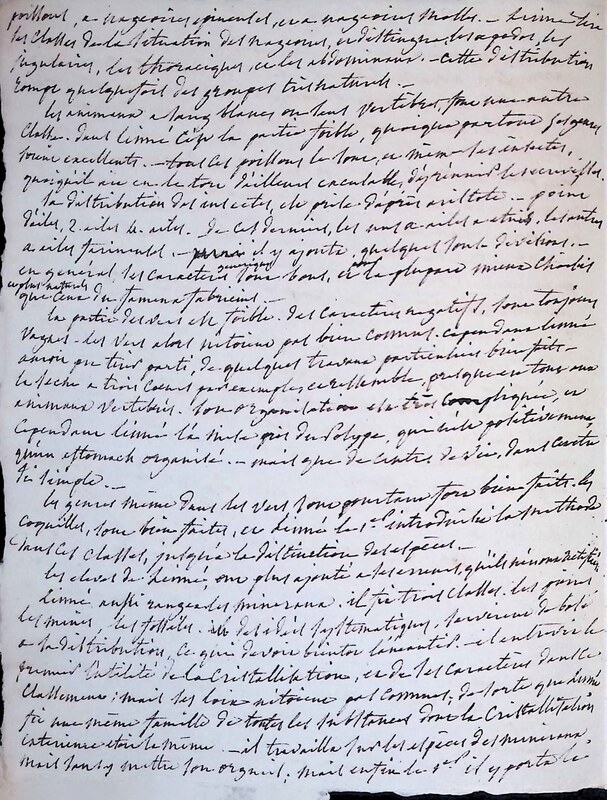 poissons, a nageoires epineuses, et a nageoires molles. — Linné tire
ses classes de la situation des nageoires, et distingua, les apodes, les
jugulaires, les thoraciques, et les abdominaux. — cette distribution
rompt quelquefois des groupes tres naturels. —
les animaux a sang blancs ou sans vertebres, font une autre
classe. dans linné c'est la partie foible, quoique partout ses genres
soient excellents. — tous les poissons le sont, et même les insectes,
quoiqu'il ait eu le tort d'ailleurs
la distribution des insectes, est prise d'après aristote — point
d'ailes, 2. ailes 4. ailes. — de ces derniers, les uns a ailes a etuis, les autres
a ailes farineuses. — il y ajoute, quelques sous divisions. —
en general, les caracteres generiques sont bons, et la plupart mieux choisis
et plus naturels
que ceux du fameux fabricius. —
la partie des vers est foible. des caracteres negatifs, sont toujours
vagues. les vers alors n'etoient pas bien connus. cependant linné
auroit pu tirer parti, de quelques travaux particuliers bien faits —
la seche a trois coeurs par exemple, et ressemble, presque en tous aux
animaux vertebrés. son organisation est très compliquée, et
cependant linné la mit près du polype, qui n'est positivement
qu'un estomach organisé. — mais que de centres de vie, dans cet être
si simple. —
les genres même dans les vers sont pourtant fort bien faits. les
coquilles, sont bien faites, et linné le 1er introduisit la methode
dans ces classes, jusqu'à la distinction des especes. —
les eleves de linné, ont plus ajouté a ses erreurs, qu'ils n'en ont
linné, aussi rangea les mineraux. il fit trois classes. les pierres
les mines, les fossiles. des idées systematiques, servirent de base
a sa distribution, ce qui devoit bientot l'aneantir. — il entrevit le
premier l'utilité de la cristallisation, et de ses caracteres dans le
classement; mais ses loix n'etoient pas connues, de sorte que linné
fit une même famille de toutes les substances dont la cristallisation
exterieure etoit la même. — il travailla sur les especes des mineraux
mais sans y mettre son orgueil; mais enfin le 1er il y porta le